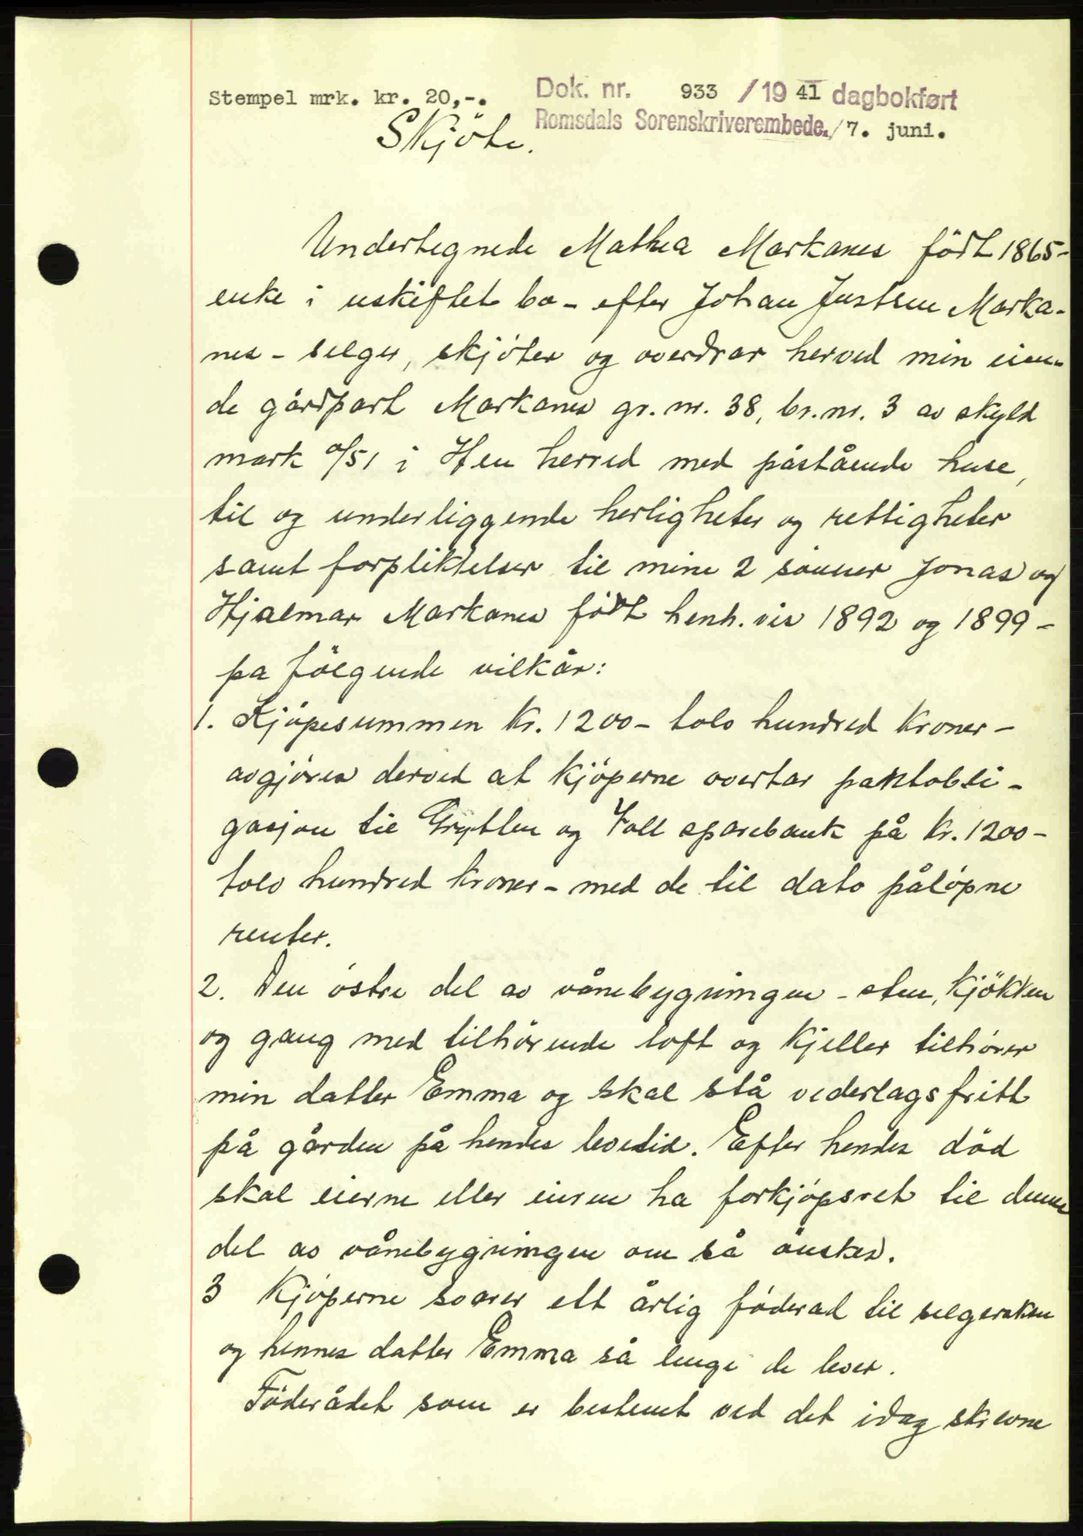 Stempel mrk. kr. 20,-.
Dok. nr. 933 /1941 dagbokført
Romsdals Sorenskriverembede. /7. juni.
Skjöte.
Undertegnede Mathea Markanes födt 1865-
enke i uskiftet bo - efter Johan Justsen Marka-
nes - selger, skjöter og overdrar herved min eien-
de gårdpart Markanes gr. nr. 38, br. nr. 3 av skyld
mark 0/51 i Hen herred med påstående huse,
til og underliggende herligheter og rettigheter
samt forpliktelser til mine 2 sönner Jonas og
Hjalmar Markanes födt henh.vis 1892 og 1899 -
på fölgende vilkår:
1. Kjöpesummen kr. 1200 - tolv hundred kroner -
avgjöres derved at kjöperne overtar pantobli-
gasjon til Grytten og Voll sparebank på kr. 1200 -
tolv hundred kroner - med de til dato pålöpne
renter.
2. Den östre del av våningbygningen - stue, kjökken
og gang med tilhörende loft og kjeller tilhörer
min datter Emma og skal stå vederlagsfritt
på gården på hendes levetid. Efter hendes död
skal eierne eller eieren ha forkjöpsret til denne
del av vånebygningen om så önskes.
3 Kjöperne svarer ett årlig föderad til selgersken
og hennes datter Emma så lenge de lever.
Föderådet som er bestemt ved det idag skrevne